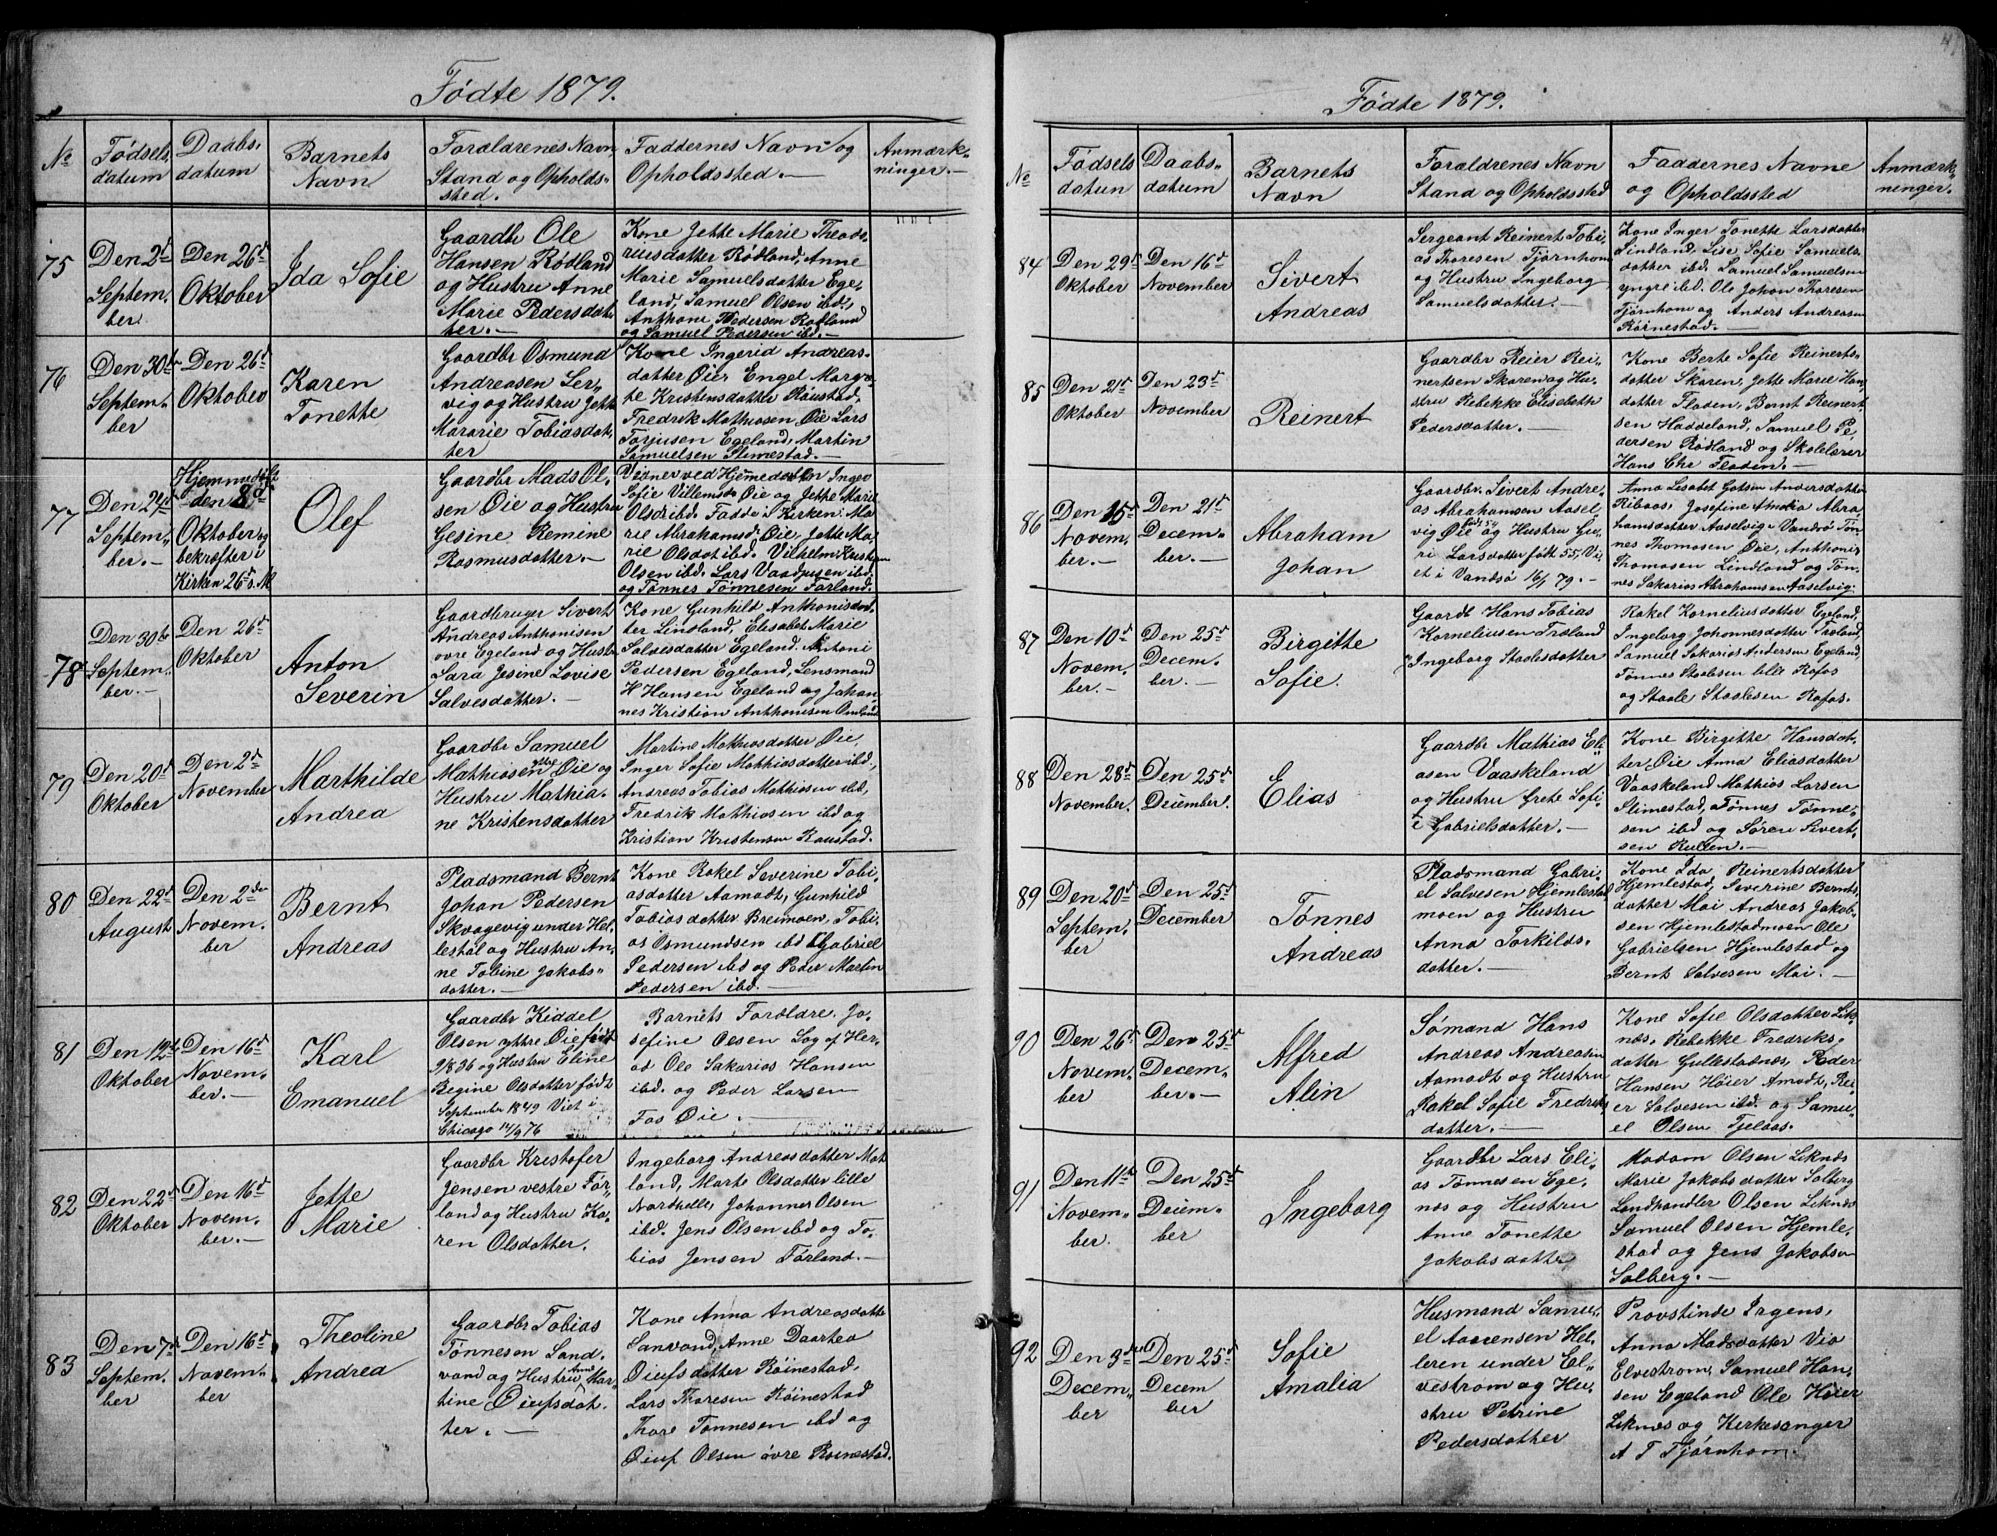 Fødte 1879.
No
Fødsels
datum
Daabs-
datum
Barnets
Navn
Forældrenes Navn
Stand og Opholds-
sted.
Faddernes Navn og
Opholdssted.
Anmærk-
ninger.
75
Den 2d
Septem-
ber
Den 26d
Oktober
Ida Sofie
Gaardbr Ole
Hansen Rødland
og Hustru Anne
Marie Pedersdat
ter.
Kone Jette Marie Theodo-
riusdatter Rødland, Anne
Marie Samuelsdatter Ege-
land, Samuel Olsen ibd.,
Anthoni Pedersen Rødland
og Samuel Pedersen ibd.
76
Den 30te
Septem-
ber
Den 26d
Oktober
Karen
Tonette
Gaardbr Osmund
Andreasen Ler-
vig og Hustru Jette
Mararie Tobiasdat-
ter
Kone Ingerid Andreas-
datter Øie, Engel Margre-
te Kristensdatter Røustad,
Fredrik Mathiasen Øie Lars
Torjusen Egeland, Martin
Samuelsen Slimestad.
77
Den 24d
Septem-
ber.
Hjemmedøbt
den 8d
Oktober og
bekræftet i
Kirken 26d s. M
Olef
Gaardbr Mads Ol-
sen Øie og Hustru
Gesine Remine
Rasmusdatter.
Vidner ved Hjemmedaaben Inger
Sofie Villemsd. Øie og Jette Marie
Olsd ibd. Fadde i Kirken: Ma-
rie Abrahamsd. Øie, Jette Ma-
rie Olsdat ibd. Vilhelm Kristian
Olsen ibd. Lars
og Tønnes Tønnesen Førland.
78
Den 30te
Septem-
ber.
Den 26d
Oktober
Anton
Severin
Gaardbruger Sivert
Andreas Anthonisen
ovre Egeland og Hustr
Sara Jesine Lovise
Salvesdatter.
Kone Gunhild Anthonisdat-
ter Lindland, Elisabet Marie
Salvesdatter Egeland. Antoni
Pedersen Egeland, Lensmand
H Hansen Egeland og Johan-
nes Kristian Anthonisen Omland
79
Den 20d
Oktober
Den 2d
November
Marthilde
Andrea
Gaardbr Samuel
Mathiasen ytre Øie og
Hustru Mathia-
ne Kristensdatter
Martine Mathiasdatter Øie,
Inger Sofie Mathiasdatter ibd.,
Andreas Tobias Mathiasen ibd,
Fredrik Mathiasen ibd og
Kristian Kristensen Raustad.
80
Den 22d
August
Den 2den
Novem-
ber
Bernt
Andreas
Pladsmand Bernt
Johan Pedersen
Skvagevig under Hel-
lestøl og Hustru An-
ne Tobine Jakobs-
datter.
Kone Rakel Severine Tobi-
asdatter Aamodt, Gunhild
Tobiasdatter Breimoen, Tobi-
as Osmundsen ibd Gabriel
Pedersen ibd og Peder Martin
Pedersen ibd.
81
Den 12te
Oktober
Den 16d
Novem-
ber.
Karl
Emanuel
Gaardbr Kiddel
Olsen yttre Øie født
9/8 36 og Hustru Eline
Regine Olsdatter født
September 1849 Viet i
Chicago 14/9 76
Barnets Forældre. Jo-
sefine Olsen Log af Her-
ad Ole Sakarias Hansen
ibd. og Peder Larsen
Fos Øie.
82
Den 22d
Oktober
Den 16d
Novem-
ber.
Jette
Marie
Gaardbr Kristofer
Jensen vestre Før-
land og Hustru Ka-
ren Olsdatter.
Ingeborg Andreasdatter Mot
land, Marte Olsdatter lille
Nordhelle, Johannes Olsen
ibd. Jens Olsen ibd og To-
bias Jensen Førland.
83
Den 7d
Septem-
ber
Den 16d
Novem-
ber
Theoline
Andrea
Gaardbr Tobias
Tønnesen Sand-
vand og Hustru Anne Mar-
tine Øiufsdat-
ter.
Kone Anna Andreasdatter
Sanvand, Anne Daartea
Øiufsdatter Røinestad,
Lars Thoresen Røinestad
Thore Tønnesen ibd og
Øiuf Olsen øvre Røinestad.
Fødte 1879.
No
Fødsels
datum
Daabs-
datum
Barnets
Navn
Forældrenes Navn
Stand og Opholdssted
Faddernes Navne
og Opholdssted
Anmærk-
ninger.
84
Den 29d
Oktober
Den 16d
November
Sivert
Andreas
Sergeant Reinert Tobi-
as Thoresen Tjørnhom
og Hustru Ingeborg
Samuelsdatter.
Kone Inger Tonette Larsdatter
Lindland, Lise Sofie Samuels-
datter ibd. Samuel Samuelsen
yngre ibd. Ole Johan Thoresen
Tjørnhom og Anders Andreasen
Rørnestad.
85
Den 21d
Oktober
Den 23d
November
Reinert
Gaardbr Reier Rei-
nertsen Skaren og Hu-
stru Rebekke Elisebeth
Pedersdatter.
Kone Berte Sofie Reinerts-
datter Skaren, Jette Marie Han
datter Fladen, Bernt Reinert
sen Haddeland, Samuel Pe-
dersen Rødland og Skolelærer
Hans Chr Fladen.
86
Den 15d
Novem-
ber.
Den 21d
Decem-
ber.
Abraham
Johan
Gaardbr. Sivert Andre-
as Abrahamsen Aasel-
vig Øie og Hustru Gu-
ri Larsdatter født 55, Vi-
et i Vandsø 16/1 79.
Anna Lisabet Gotsen Andersdatter
Ribaas, Josefine Amalia Abra
hamsdatter Aaselvig Vandsø Tøn-
nes Thomasen Øie, Anthoni
Thomasen Lindland og Tøn-
nes Sakarias Abrahamsen Aaselvig.
87
Den 10d
Novem-
ber.
Den 25d
Decem-
ber.
Birgitte
Sofie.
Gaardb Hans Tobias
Korneliusen Træland
Ingeborg Staalesdatter
Rakel Korneliusdatter Egeland,
Ingeborg Johannesdatter Træland,
Samuel Sakarias Andersen Egeland,
Tønnes Staalesen lille Rafos
og Staale Staalesen Rafos.
88
Den 28d
November.
Den 25d
December.
Elias
Gaardbr Mathias Eli-
asen Vaaskeland
og Hustru Grete Sofi-
e Gabrielsdatter.
Kone Birgitte Hansdat-
ter Øie Anna Eliasdatter
Vaaskeland Mathias Larsen
Slimestad, Tønnes Tønne-
sen ibd og Søren Sivert-
sen Kullen.
89
Den 20d
Septem-
ber
Den 25d
December
Tønnes
Andreas
Pladsmand Gabri-
el Salvesen Hjemlestad
moen og Hustru
Anna Torkilds-
datter.
Kone Ida Reinertsdatter
Hjemlestad, Severine Bernts
datter Moi Andreas Jakob-
sen Hjemlestadmoen Ole
Gabrielsen Hjemlestad og
Bernt Salvesen Moi.
90
Den 26d
Novem-
ber
Den 25d
Decem-
ber.
Alfred
Alin
Sømand Hans
Andreas Andreasen
Aamodt og Hustru
Rakel Sofie Fredriks
datter.
Kone Sofie Olsdatter Lik-
næs, Rebekke Fredriks-
datter Gullestadnæs, Peder
Hansen Høier Amodt, Rei-
er Salvesen ibd. og Samu-
el Olsen Fjelaas.
91
Den 11te
Novem-
ber.
Den 25d
Decem-
ber
Ingeborg
Gaardbr Lars Eli-
as Tønnesen Ege-
nes og Hustru
Anne Tonette
Jakobsdatter
Madam Olsen Leknæs
Marie Jakobsdatter Solberg
Landhandler Olsen Leknæs
Samuel Olsen Hjemle-
stad og Jens Jakobsen
Solberg.
92
Den 3d
Decem-
ber
Den 25d
Decem
ber
Sofie
Amalia
Husmand Samu-
el Aasensen Hel-
leren under El-
vestrom og Hu-
stru Petrine
Pedersdatter
Provstinde Irgens,
Anna Madsdatter Vio
Elvestrom, Samuel Han-
sen Egeland Ole Høier
Liknæs og Kirkesanger
A T Tjørnhom.